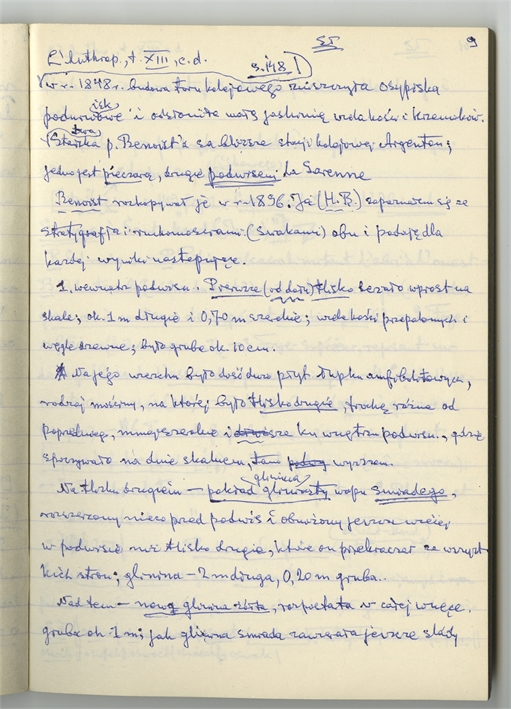 ST 9
L'Anthrop., t. XIII, c. d.
s. 148
W r. 1878 r. budowa toru kolejowego zniszczyła osypiska
podnawisowe i odsłoniła małą jaskinię wiele kości i krzemieni.
Stanowiska p. Benoist'a są bliższe stacji kolejowej Argenton;
jedno jest pieczarą, drugie podwisem La Garenne
Benoist rozkopywał je w r. 1896. Ja (H.B.) zapoznałem się ze
stratygrafią i ruchomościami (świakami) obu i podaję dla
każdej wyniki następujące.
1. wewnątrz podwisu. Pierwsze (od dołu) tlisko leżało wprost na
skale; ok. 1 m długie i 0,70 m szerokie; wiele kości przepalonych i
węgle drzewne; było grube ok. 10 cm.
Na jego wierzchu było dość dużo płyt łupku amfibolitowych,
rodzaj mościny, na której było tlisko drugie, trochę różne od
poprzedniego, mniej szerokie i ku wnętrzu podwisu, gdzie
spoczywało na dnie skalnem, tam wyższem.
Na tlisku drugiem – pokład gliniasty wapn śniadego,
rozszerzony nieco przed podwis i obniżony jeszcze więcej
w podwisie niż tlisko drugie, które on przekraczał ze wszyst-
kich stron; glinina – 2 m długa, 0,20 m gruba.
Nad tem – nowa glina żółta, rozpostarta w całej wnęce,
gruba ok. 1 m; jak glina śniada zawierała jeszcze ślady